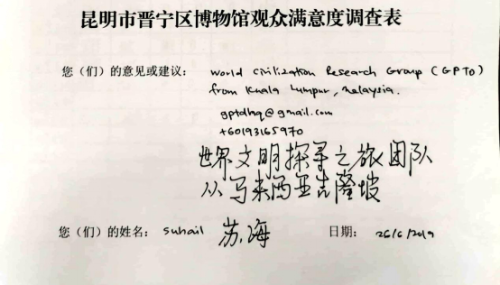 昆明市晋宁区博物馆观众满意度调查表
您（们）的意见或建议： World Civilization Research Group (GPTO)
from Kuala Lumpur, Malaysia.
gptdhq@gmail.com
+60193165970
世界文明探寻之旅团队
从马来西亚吉隆坡
您（们）的姓名： suhail 苏海 日期： 26/6/2019